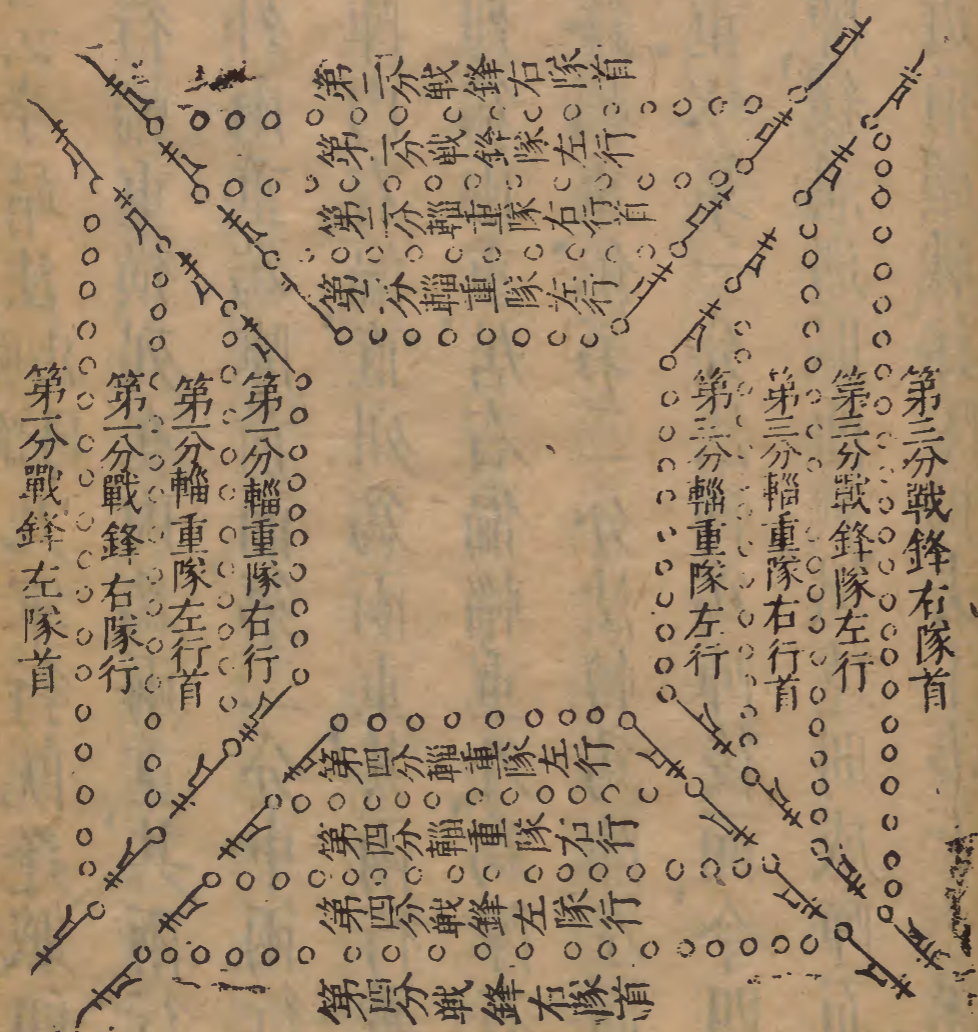 第二分戦鋒右隊首
第二分戦鋒隊左行
第二分輜重隊右行首
第二分輜重隊左行
第三分戦鋒右隊首
第三分戰鋒隊左行
第三分輜重隊右行首
第三分輜重隊左行
第一分輜重隊右行
第一分輜重隊左行首
第一分戰鋒右隊行
第一分戰鋒左隊首
第四分輜重隊左行
第四分輜重隊右行
第四分戦鋒左隊行
第四分戦鋒右隊首